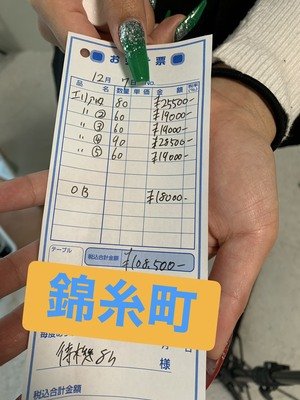 お 票
12月 7日 No.
品 名 数量 単価 金額
80 ¥25500-
〃 ② 60 ¥19000-
〃 ③ 60 ¥19000-
〃 ④ 90 ¥28500-
〃 ⑤ 60 ¥19000-
OB ¥18000-
テーブル 税込合計金額 ¥108,500-
錦糸町
待機8h 様
税込合計金額